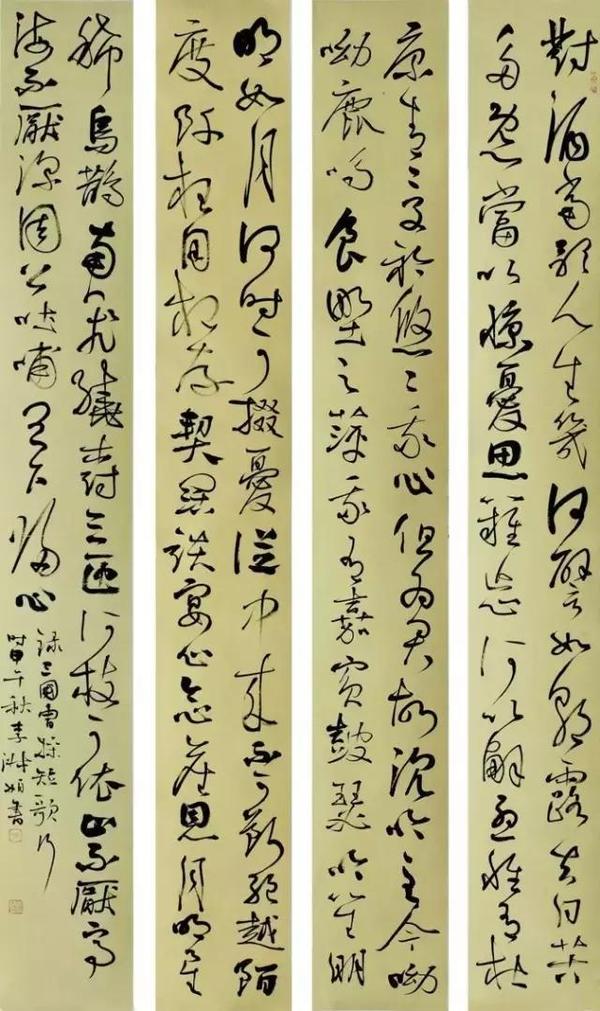 對酒當歌人生幾何譬如朝露去日苦
多慨當以慷憂思難忘何以解憂唯有杜
康青〻子衿悠〻我心但為君故沉吟至今呦
呦鹿鳴食野之苹我有嘉賓鼓瑟吹笙明
明如月何時可掇憂從中來不可斷絕越陌
度阡枉用相存契闊談宴心念舊恩月明星
稀烏鵲南飛繞樹三匝何枝可依山不厭高
海不厭深周公吐哺天下歸心
錄三國曹操短歌行
時甲午秋李淑娟書